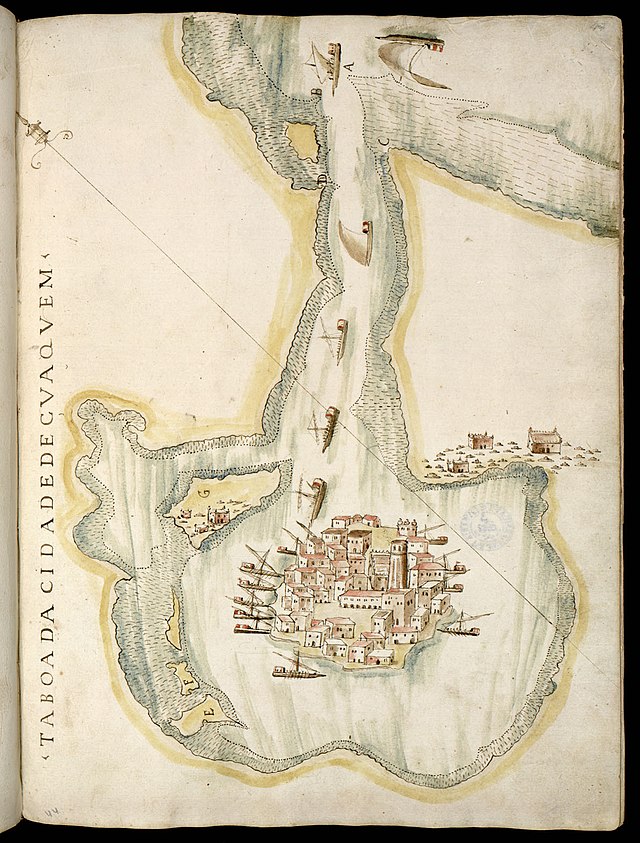 ‹ TABOA DA CIDADE DE ÇVAQVEM ‹
A
B
C
D
G
F
E
44